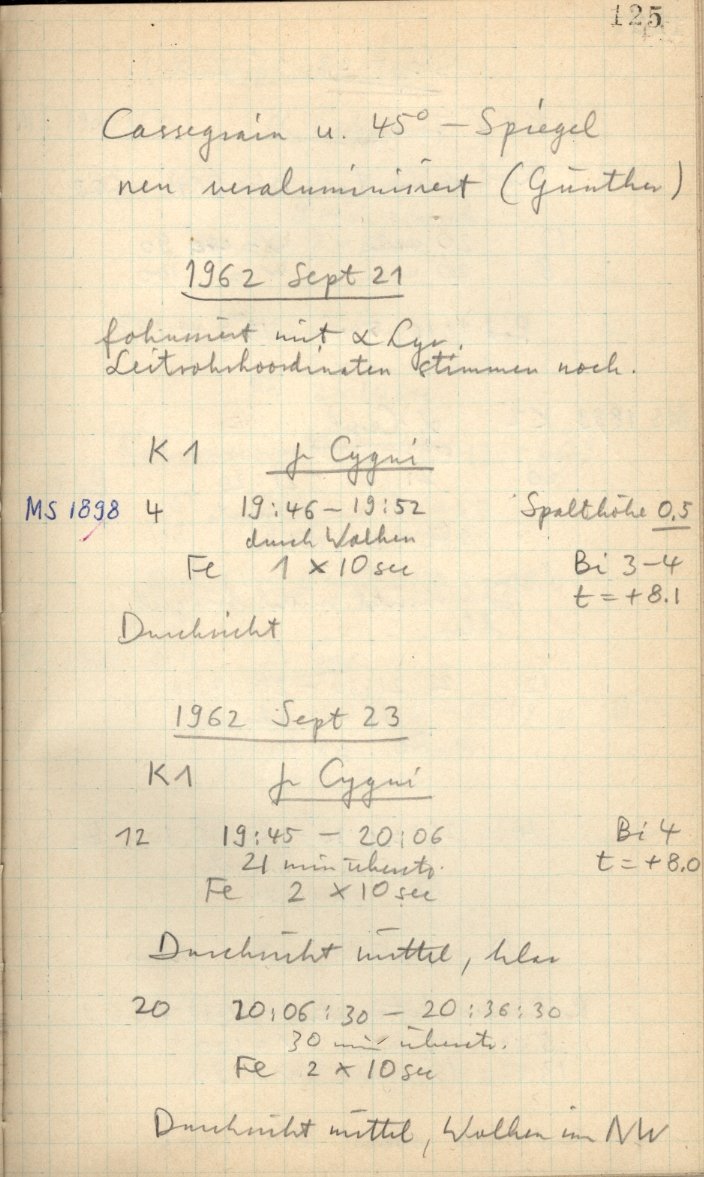 125
Cassegrain u. 45° – Spiegel
neu veraluminisiert (Günther)
1962 Sept 21
fokussiert mit α Lyr.
Leitrohrkoordinaten stimmen noch.
K 1 γ Cygni
MS 1898 4 19:46 – 19:52 Spalthöhe 0,5
durch Wolken
Fe 1 × 10 sec Bi 3–4
t = +8.1
Durchsicht
1962 Sept 23
K 1 γ Cygni
12 19:45 – 20:06 Bi 4
21 min überstr. t = +8.0
Fe 2 × 10 sec
Durchsicht mittel, klar
20 20:06:30 – 20:36:30
30 min überstr.
Fe 2 × 10 sec
Durchsicht mittel, Wolken im NW